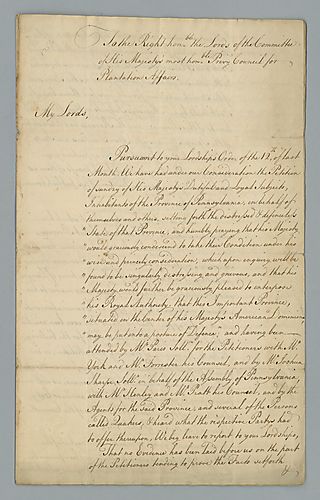 To the Right hon.ble the Lords of the Committee
of His Majesty's most hon.ble Privy Council for
Plantation Affairs.
My Lords,
Pursuant to your Lordships Order of the 12th of last
Month We have had under our Consideration the Petition
of sundry of His Majesty's Dutyful and Loyal Subjects,
Inhabitants of the Province of Pennsylvania, on behalf of
themselves and others, setting forth the distressed & defenceless
"State of that Province, and humbly praying that his Majesty
"would graciously condescend to take their Condition under his
"wise and princely consideration, which upon enquiry will be
"found to be singularly distressing and grievous, and that his
"Majesty would further be graciously pleased to interpose
"his Royal Authority, that this Important Province,
"situated in the Center of his Majesty's American Dominions
"may be put into a posture of Defence", and having been
attended by Mr. Paris Sollr. for the Petitioners with Mr.
York and Mr. Forrester his Counsel, and by Mr. Joshua
Sharpe Sollr. in behalf of the Assembly of Pennsylvania,
with Mr. Henley and Mr. Pratt his Counsel, and by the
Agents for the said Province and several of the Persons
called Quakers, & heard what the respective Partys had
to offer thereupon, We beg leave to report to your Lordships,
That no Evidence has been laid before us on the part
of the Petitioners tending to prove the Facts setforth